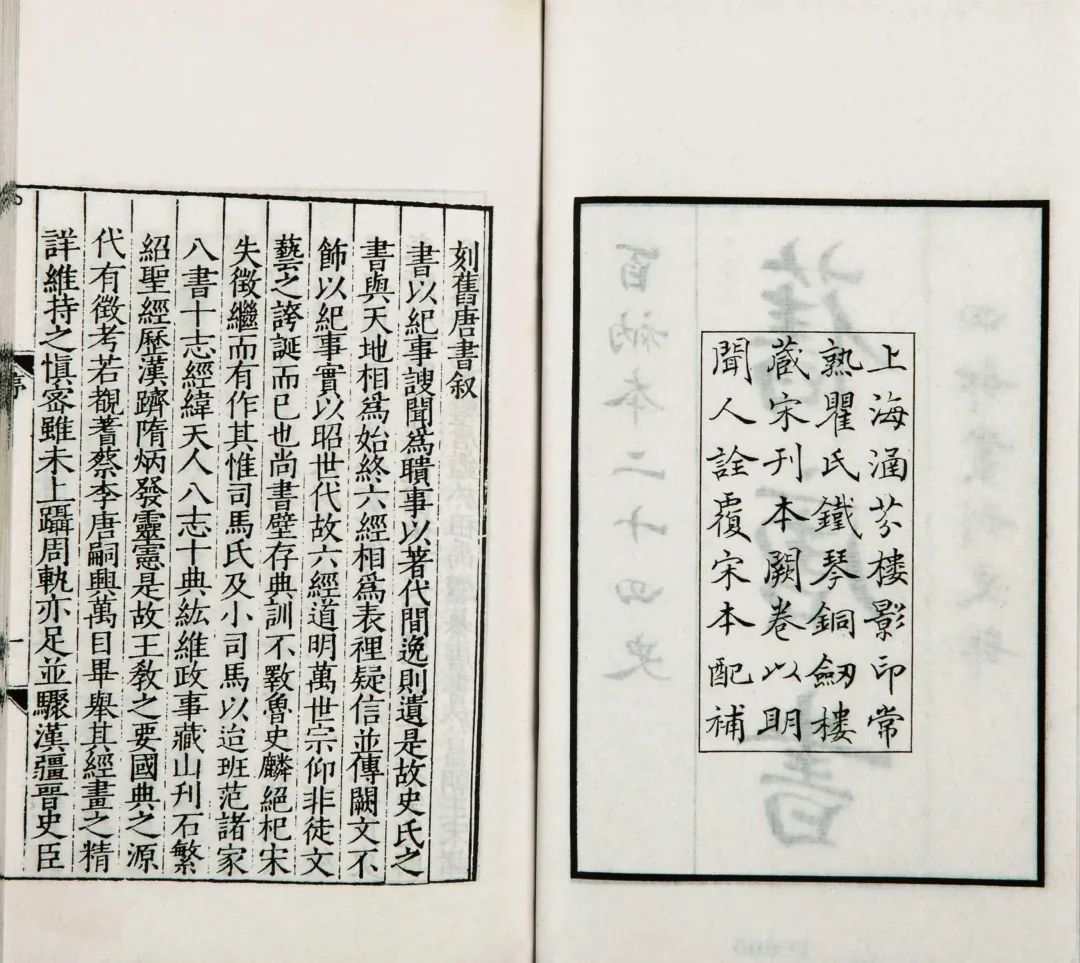 上海涵芬樓影印常
熟瞿氏鐵琴銅劒樓
藏宋刊本闕卷以明
聞人詮覆宋本配補
刻舊唐書叙
書以紀事謏聞爲聵事以著代間逸則遺是故史氏之
書與天地相爲始終六經相爲表裡疑信並傳闕文不
飾以紀事實以昭世代故六經道明萬世宗仰非徒文
藝之誇誕而已也尚書壁存典訓不斁魯史麟絕杞宋
失徵繼而有作其惟司馬氏及小司馬以迨班范諸家
八書十志經緯天人八志十典紘維政事藏山刊石繁
紹聖經歷漢躋隋炳發靈憲是故王教之要國典之源
代有徵考若觀蓍蔡李唐嗣興萬目畢舉其經畫之精
詳維持之慎密雖未上躡周軌亦足並驟漢疆晉史臣
序
一
百衲本二十四史
舊唐書